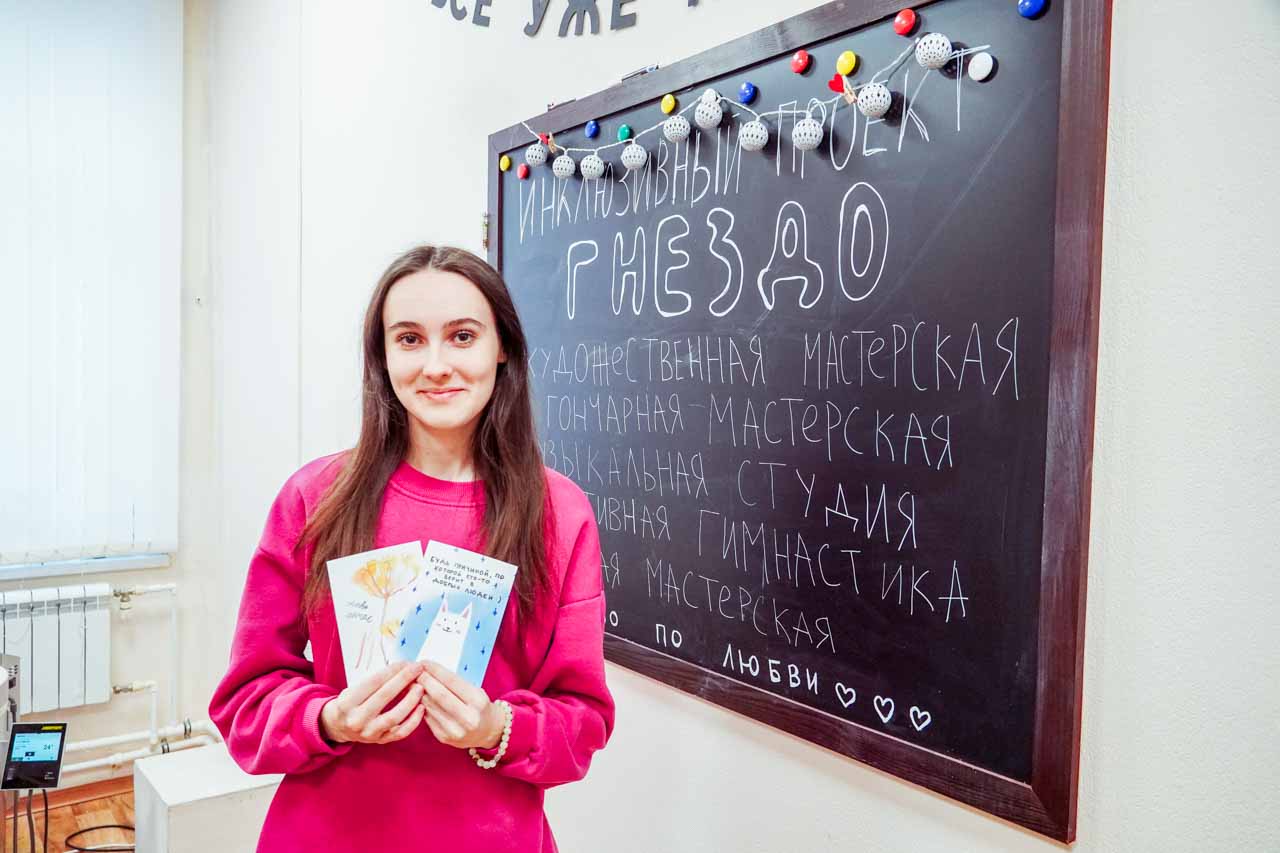 УЖЕ
ИНКЛЮЗИВНЫЙ ПРОЕКТ
ГНЕЗДО
ХУДОЖЕСТВЕННАЯ МАСТЕРСКАЯ
ГОНЧАРНАЯ МАСТЕРСКАЯ
МУЗЫКАЛЬНАЯ СТУДИЯ
ГИМНАСТИКА
МАСТЕРСКАЯ
ПО ЛЮБВИ
БУДЬ ПРИЧИНОЙ, ПО
КОТОРОЙ КТО-ТО
ВЕРИТ В
ДОБРЫХ ЛЮДЕЙ :)
24°